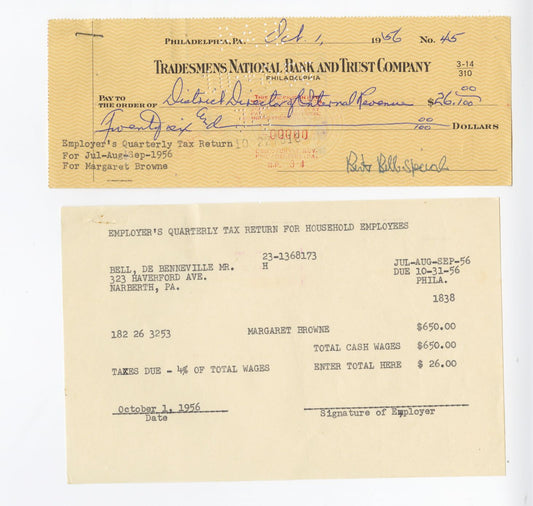 PHILADELPHIA, PA. Oct. 1, 1956 No. 45
TRADESMENS NATIONAL BANK AND TRUST COMPANY 3-14
PHILADELPHIA 310
PAY TO
THE ORDER OF District Director of Internal Revenue $26.00/100
Twenty six and 00/100 DOLLARS
Employer's Quarterly Tax Return
For Jul-Aug-Sep-1956
For Margaret Browne
Bert Bell-special
EMPLOYER'S QUARTERLY TAX RETURN FOR HOUSEHOLD EMPLOYEES
23-1368173
BELL, DE BENNEVILLE MR. H JUL-AUG-SEP-56
323 HAVERFORD AVE. DUE 10-31-56
NARBERTH, PA. PHILA.
1838
182 26 3253 MARGARET BROWNE $650.00
TOTAL CASH WAGES $650.00
TAXES DUE - 4% OF TOTAL WAGES ENTER TOTAL HERE $ 26.00
October 1, 1956
Date Signature of Employer